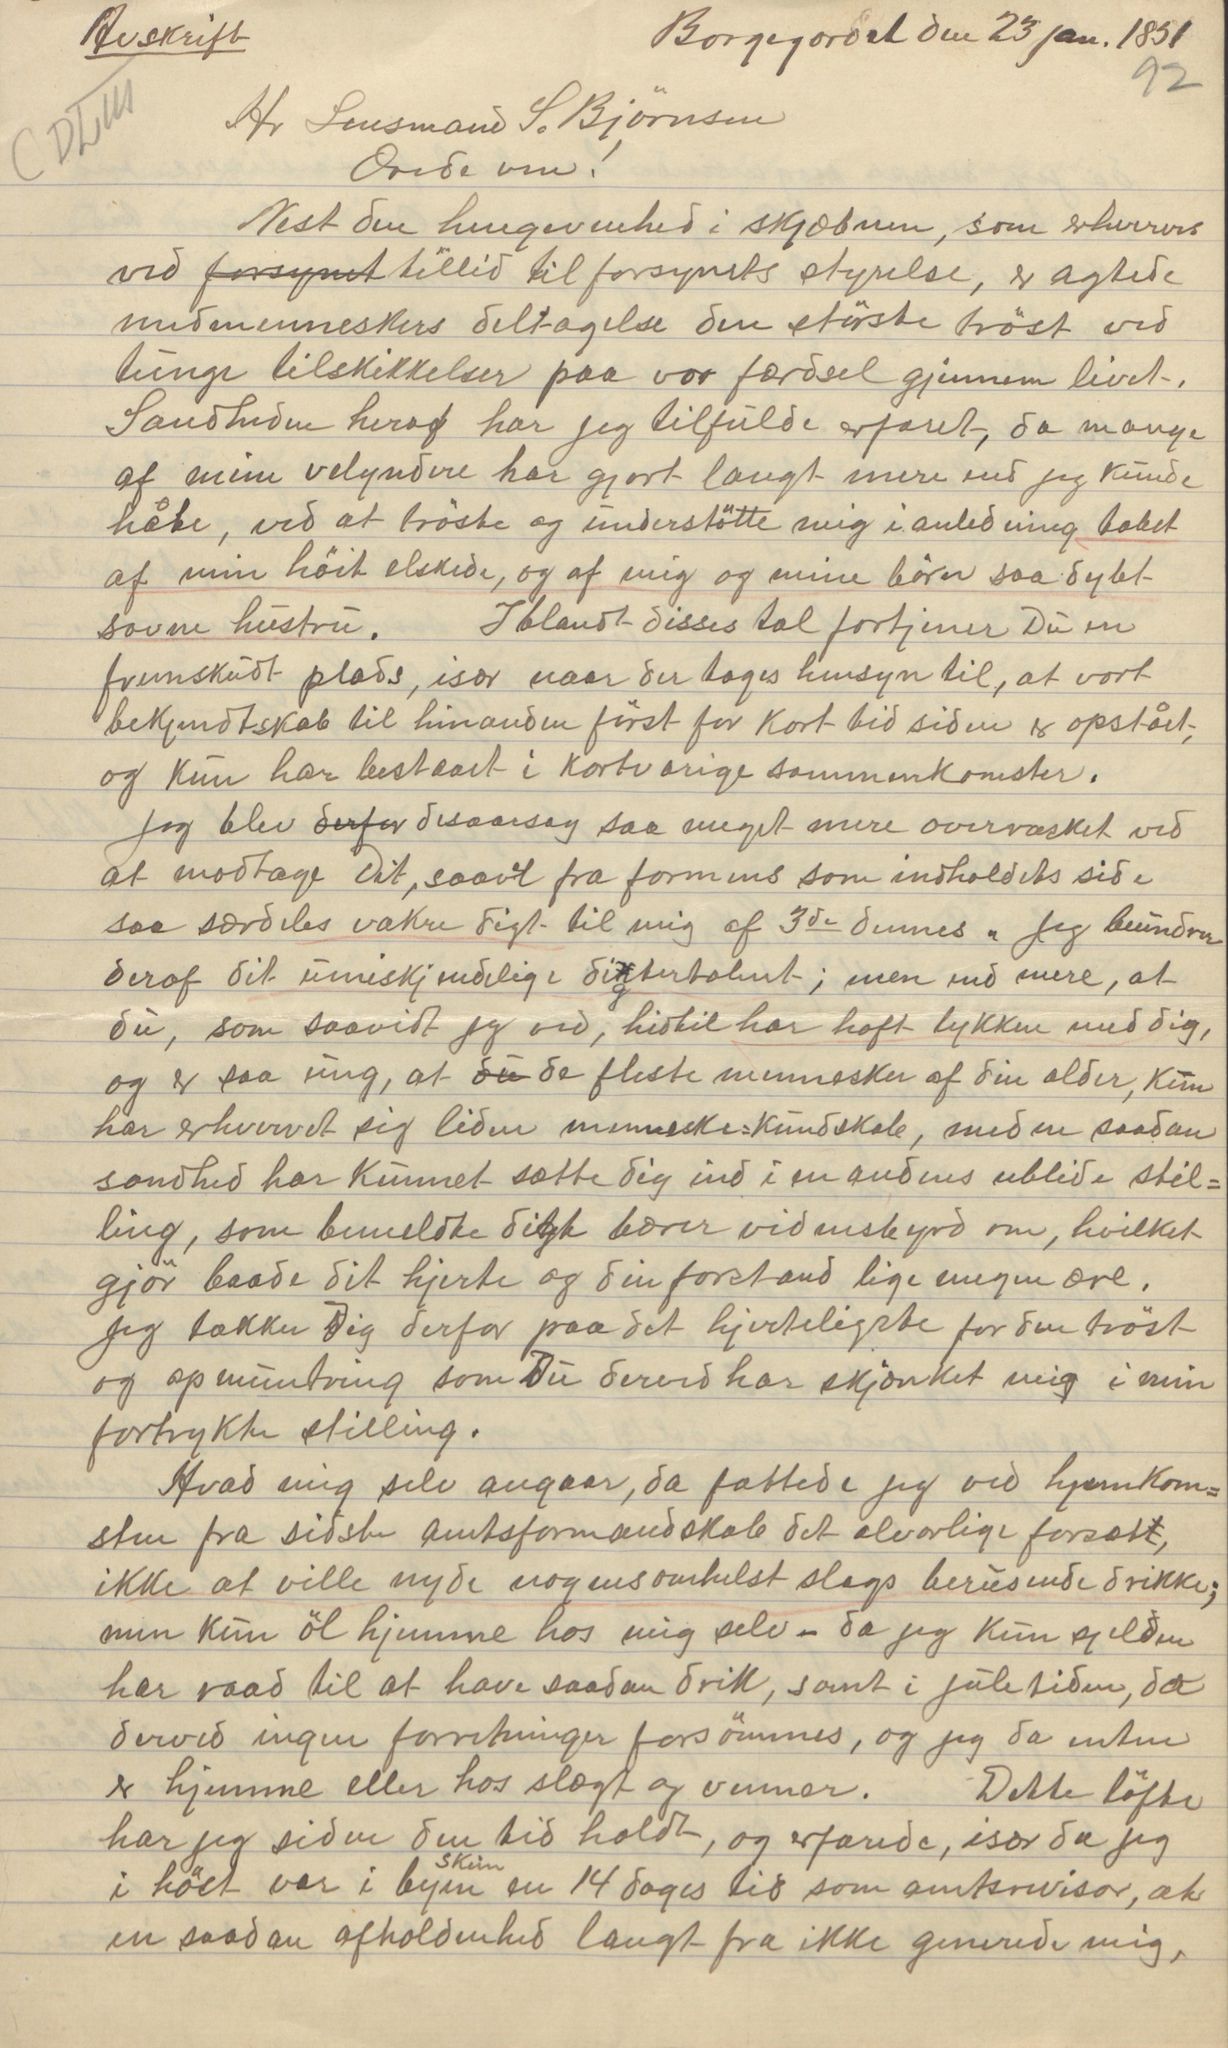 Avskrift
Borgegordet den 23 jan. 1851
92
C DLIII
Hr Lensmand S. Björnsen
Ærede ven!
Nest den hengivenhed i skjæbnen, som erhverves
ved forsynet tillid til forsynets styrelse, er agtede
medmenneskers deltagelse den störste tröst ved
tunge tilskikkelser paa vor færdsel gjennem livet.
Sandheden heraf har jeg tilfulde erfaret, da mange
af mine velyndere har gjort langt mere end jeg kunde
håbe, ved at tröste og understötte mig i anledning tabet
af min höit elskede, og af mig og mine börn saa dybt
savne hustru. Iblandt disses tal fortjener Du en
fremskudt plads, især naar der tages hensyn til, at vort
bekjendtskab til hinanden först for kort tid siden er opstået,
og kun har bestaaet i kortvarige sammenkomster.
Jeg blev derfor desaarsag saa meget mere overrasket ved
at modtage Dit, saavel fra formens som indholdets side
saa særdeles vakre digt til mig af 3de dennes. Jeg beundrer
deraf dit umiskjendelige digtertalent; men end mere, at
du, som saavidt jeg ved, hidtil har haft lykken med dig,
og er saa ung, at du de fleste mennesker af din alder, kun
har erhvervet sig liden menneske=kundskab, med en saadan
sandhed har kunnet sætte dig ind i en andens ublide stil=
ling, som bemeldte digt bærer vidnesbyrd om, hvilket
gjör baade dit hjerte og din forstand lige megen ære.
Jeg takker Dig derfor paa det hjerteligste for den tröst
og opmuntring som Du derved har skjænket mig i min
fortrykte stilling.
Hvad mig selv angaar, da fattede jeg ved hjemkom=
sten fra sidste amtsformandskab det alvorlige forsætt,
ikke at ville nyde nogensomhelst slags berusende drikke;
men kun öl hjemme hos mig selv - da jeg kun sjelden
har raad til at have saadan drik, samt i juletiden, da
derved ingen forretninger forsömmes, og jeg da enten
er hjemme eller hos slægt og venner. Dette löfte
har jeg siden den tid holdt, og erfarede, især da jeg
i höst var i byen skun en 14 dages tid som amtsrevisor, at
en saadan afholdenhed langt fra ikke generede mig,